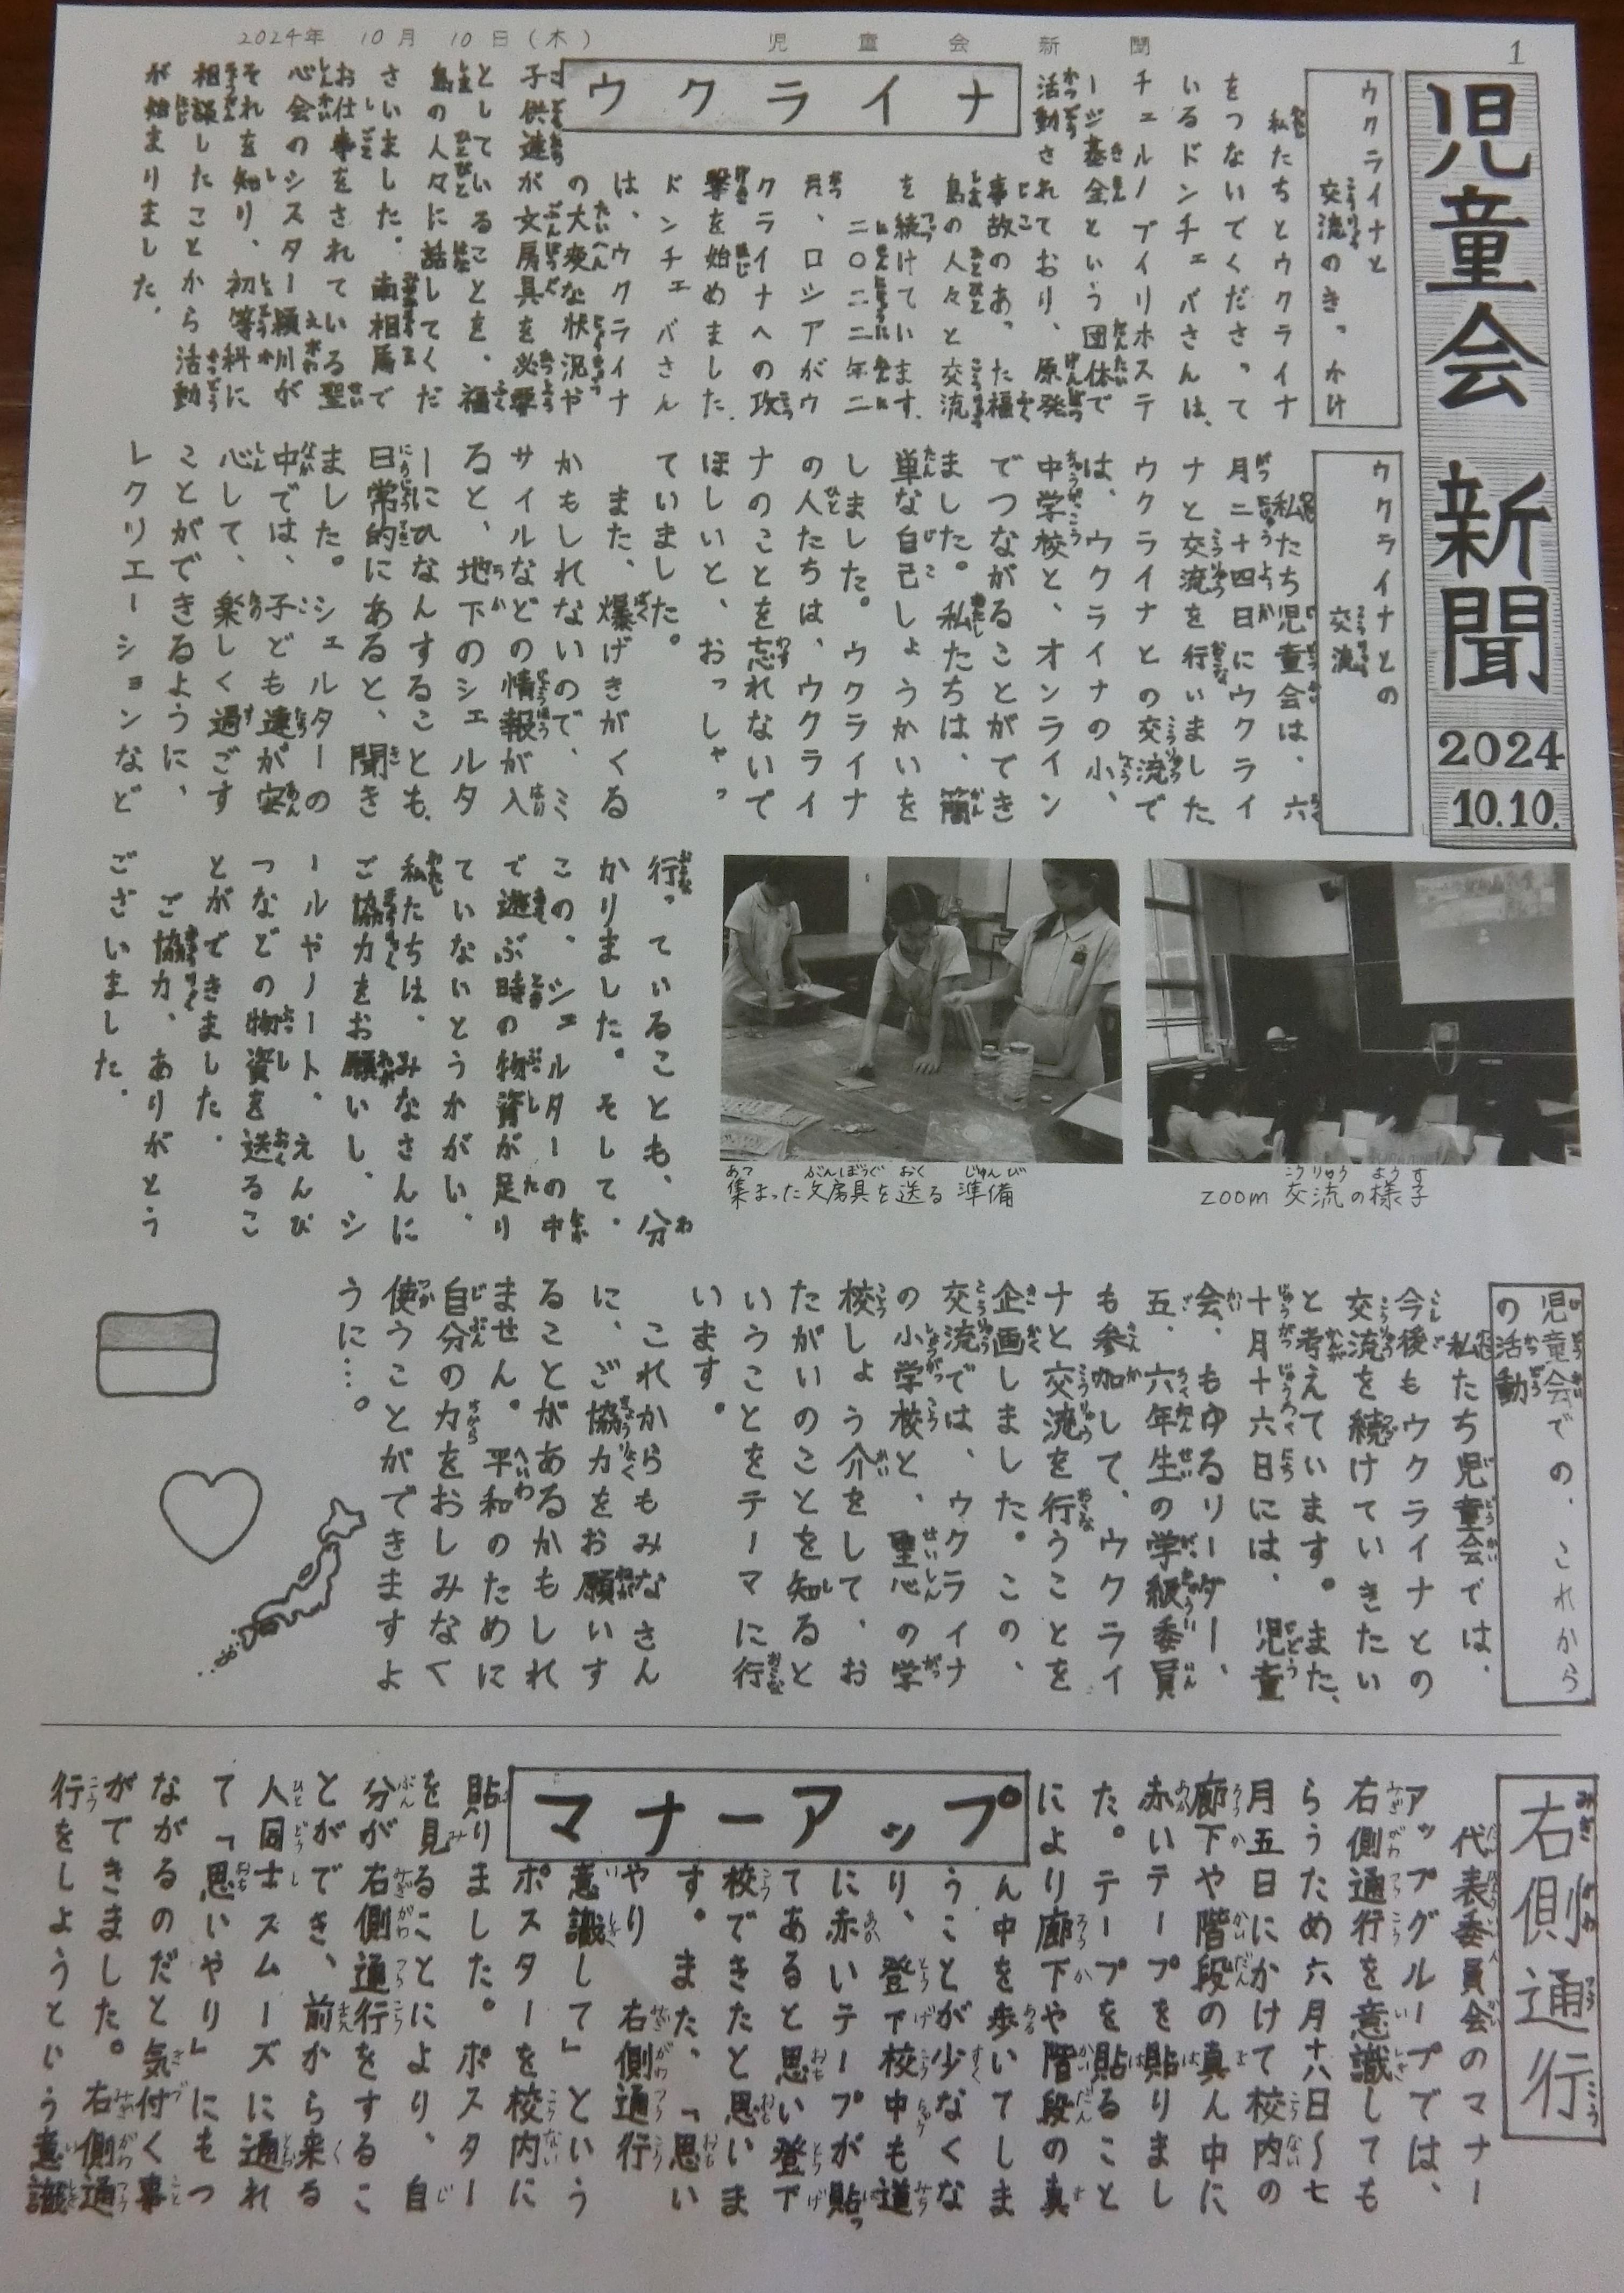 2024年 10月 10日(木)
児童会新聞
1
児童会新聞
2024
10.10.
ウクライナと
交流のきっかけ
ウクライナ
私たちとウクライナ
をつないでくださって
いるドンチェバさんは、
チェルノブイリホステ
ージ基金という団体で
活動されており、原発
事故のあった福
島の人々と交流
を続けています。
二〇二二年二
月、ロシアがウ
クライナへの攻
撃を始めました。
ドンチェバさん
は、ウクライナ
の大変な状況や
子供達が文房具を必要
としていることを、福
島の人々に話してくだ
さいました。南相馬で
お仕事をされている聖
心会のシスター頴川が
それを知り、初等科に
相談したことから活動
が始まりました。
ウクライナとの
交流
私たち児童会は、六
月二十四日にウクライ
ナと交流を行いました。
ウクライナとの交流で
は、ウクライナの小、
中学校と、オンライン
でつながることができ
ました。私たちは、簡
単な自己しょうかいを
しました。ウクライナ
の人たちは、ウクライ
ナのことを忘れないで
ほしいと、おっしゃっ
ていました。
また、爆げきがくる
かもしれないので、ミ
サイルなどの情報が入
ると、地下のシェルタ
ーにひなんすることも、
日常的にあると、聞き
ました。シェルターの
中では、子ども達が安
心して、楽しく過ごす
ことができるように、
レクリエーションなど
行っていることも、分
かりました。そして、
この、シェルターの中
で遊ぶ時の物資が足り
ていないとうかがい、
私たちは、みなさんに
ご協力をお願いし、シ
ールやノート、えんぴ
つなどの物資を送るこ
とができました。
ご協力、ありがとう
ございました。
集まった文房具を送る準備
zoom 交流の様子
児童会での、これから
の活動
私たち児童会では、
今後もウクライナとの
交流を続けていきたい
と考えています。また、
十月十六日には、児童
会、もゆるリーダー、
五、六年生の学級委員
も参加して、ウクライ
ナと交流を行うことを
企画しました。この、
交流では、ウクライナ
の小学校と、聖心の学
校しょう介をして、お
たがいのことを知ると
いうことをテーマに行
います。
これからもみなさん
に、ご協力をお願いす
ることがあるかもしれ
ません。平和のために
自分の力をおしみなく
使うことができますよ
うに…。
右側通行
マナーアップ
代表委員会のマナー
アップグループでは、
右側通行を意識しても
らうため六月十八日〜七
月五日にかけて校内の
廊下や階段の真ん中に
赤いテープを貼りまし
た。テープを貼ること
により廊下や階段の真
ん中を歩いてしま
うことが少なくな
り、登下校中も道
に赤いテープが貼っ
てあると思い登下
校できたと思いま
す。また、「思い
やり 右側通行
意識して」という
ポスターを校内に
貼りました。ポスター
を見ることにより、自
分が右側通行をするこ
とができ、前から来る
人同士スムーズに通れ
て「思いやり」にもつ
ながるのだと気付く事
ができました。右側通
行をしようという意識